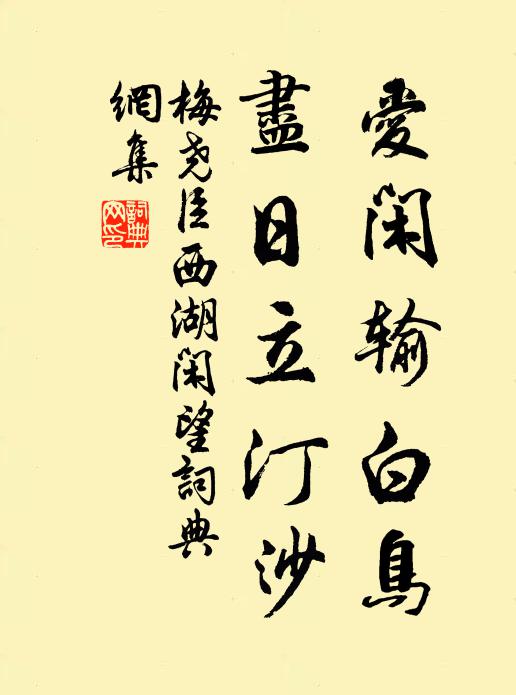 愛閑輸白鳥
盡日立汀沙
梅尧臣西湖閑望詞典
網集
詞典網印